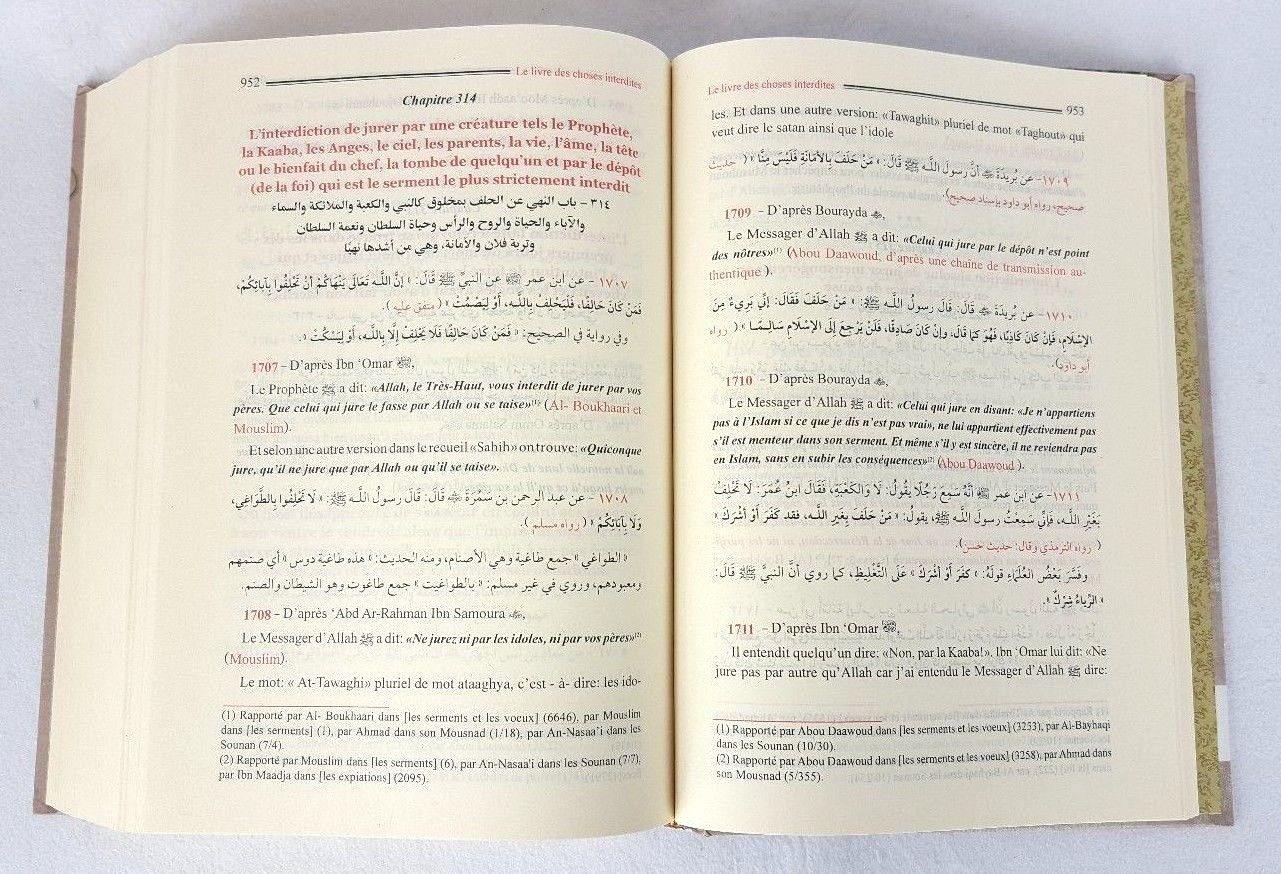 952
Le livre des choses interdites
Chapitre 314
L'interdiction de jurer par une créature tels le Prophète,
la Kaaba, les Anges, le ciel, les parents, la vie, l'âme, la tête
ou le bienfait du chef, la tombe de quelqu'un et par le dépôt
(de la foi) qui est le serment le plus strictement interdit
٣١٤ - باب النهي عن الحلف بمخلوق كالنبي والكعبة والملائكة والسماء
والآباء والحياة والروح والرأس وحياة السلطان ونعمة السلطان
وتربة فلان والأمانة، وهي من أشدها نهيًا
١٧٠٧ - عن ابن عمر ﷺ عن النبيِّ ﷺ قَالَ: «إنَّ اللَّـهَ تَعَالَى يَنْهَاكُمْ أَنْ تَحْلِفُوا بِآبَائِكُمْ،
فَمَنْ كَانَ حَالِفًا، فَلْيَحْلِفْ بِاللَّـهِ، أَوْ لِيَصْمُتْ» (متفق عليه).
وفي رواية في الصحيح: «فَمَنْ كَانَ حَالِفًا فَلَا يَحْلِفْ إلَّا بِاللَّـهِ، أَوْ لِيَسْكُتْ»
1707 - D'après Ibn 'Omar,
Le Prophète ﷺ a dit: «Allah, le Très-Haut, vous interdit de jurer par vos
pères. Que celui qui jure le fasse par Allah ou se taise»(1) (Al- Boukhaari et
Mouslim).
Et selon une autre version dans le recueil «Sahih» on trouve: «Quiconque
jure, qu'il ne jure que par Allah ou qu'il se taise».
١٧٠٨ - عن عبد الرحمن بن سَمُرَةَ قَالَ: قَالَ رسولُ اللَّـه ﷺ: «لَا تَحْلِفُوا بِالطَّوَاغِي،
وَلَا بِآبَائِكُمْ» (رواه مسلم).
«الطواغي» جمع طاغية وهي الأصنام، ومنه الحديث: «هذه طاغية دوس» أي صنمهم
ومعبودهم، وروي في غير مسلم: «بالطواغيت» جمع طاغوت وهو الشيطان والصنم.
1708 - D'après 'Abd Ar-Rahman Ibn Samoura,
Le Messager d'Allah ﷺ a dit: «Ne jurez ni par les idoles, ni par vos pères»(2)
(Mouslim).
Le mot: « At-Tawaghi» pluriel de mot ataaghya, c'est - à- dire: les ido-
(1) Rapporté par Al- Boukhaari dans [les serments et les voeux] (6646), par Mouslim
dans [les serments] (1), par Ahmad dans son Mousnad (1/18), par An-Nasaa'i dans les
Sounan (7/4).
(2) Rapporté par Mouslim dans [les serments] (6), par An-Nasaa'i dans les Sounan (7/7),
par Ibn Maadja dans [les expiations] (2095).
Le livre des choses interdites
953
les. Et dans une autre version: «Tawaghit» pluriel de mot «Taghout» qui
veut dire le satan ainsi que l'idole
١٧٠٩ - عن بُريدَةَ أنَّ رسولَ اللَّـهِ ﷺ قَالَ: «مَنْ حَلَفَ بِالأمَانَةِ فَلَيْسَ مِنَّا» (حديث
صحيح، رواه أبو داود بإسناد صحيح).
1709 - D'après Bourayda,
Le Messager d'Allah ﷺ a dit: «Celui qui jure par le dépôt n'est point
des nôtres»(1) (Abou Daawoud, d'après une chaîne de transmission au-
thentique ).
١٧١٠ - عن بُريدَةَ قَالَ: قَالَ رسولُ اللَّـهِ ﷺ: «مَنْ حَلَفَ فَقَالَ: إنِّي بَرِيءٌ مِنَ
الإسْلَامِ، فَإنْ كَانَ كَاذِبًا، فَهُوَ كَمَا قَالَ، وَإنْ كَانَ صَادِقًا، فَلَنْ يَرْجِعَ إلَى الإسْلَامِ سَالِمًا» (رواه
أبو داود).
1710 - D'après Bourayda,
Le Messager d'Allah ﷺ a dit: «Celui qui jure en disant: «Je n'appartiens
pas à l'Islam si ce que je dis n'est pas vrai», ne lui appartient effectivement pas
s'il est menteur dans son serment. Et même s'il y est sincère, il ne reviendra pas
en Islam, sans en subir les conséquences»(2) (Abou Daawoud ).
١٧١١ - عن ابن عمر أنَّهُ سَمِعَ رَجُلًا يقُولُ: لَا وَالكَعْبَةِ، فَقَالَ ابنُ عُمَرَ: لَا تَحْلِفْ
بِغَيْرِ اللَّـه، فَإنِّي سَمِعْتُ رسولَ اللَّـهِ ﷺ، يقولُ: «مَنْ حَلَفَ بِغَيرِ اللَّـهِ، فقد كَفَرَ أوْ أشْرَكَ»
(رواه الترمذي وقال: حديث حسن).
وفَسَّرَ بَعْضُ العُلَمَاءِ قولهُ: «كفَرَ أوْ أشْرَكَ» عَلَى التَّغْلِيظِ، كما روي أنَّ النبيَّ ﷺ قَالَ:
«الرِّيَاءُ شِرْكٌ».
1711 - D'après Ibn 'Omar,
Il entendit quelqu'un dire: «Non, par la Kaaba!», Ibn 'Omar lui dit: «Ne
jure pas par autre qu'Allah car j'ai entendu le Messager d'Allah ﷺ dire:
(1) Rapporté par Abou Daawoud dans [les serments et les voeux] (3253), par Al-Bayhaqi
dans les Sounan (10/30).
(2) Rapporté par Abou Daawoud dans [les serments et les voeux] (3258), par Ahmad dans
son Mousnad (5/355).